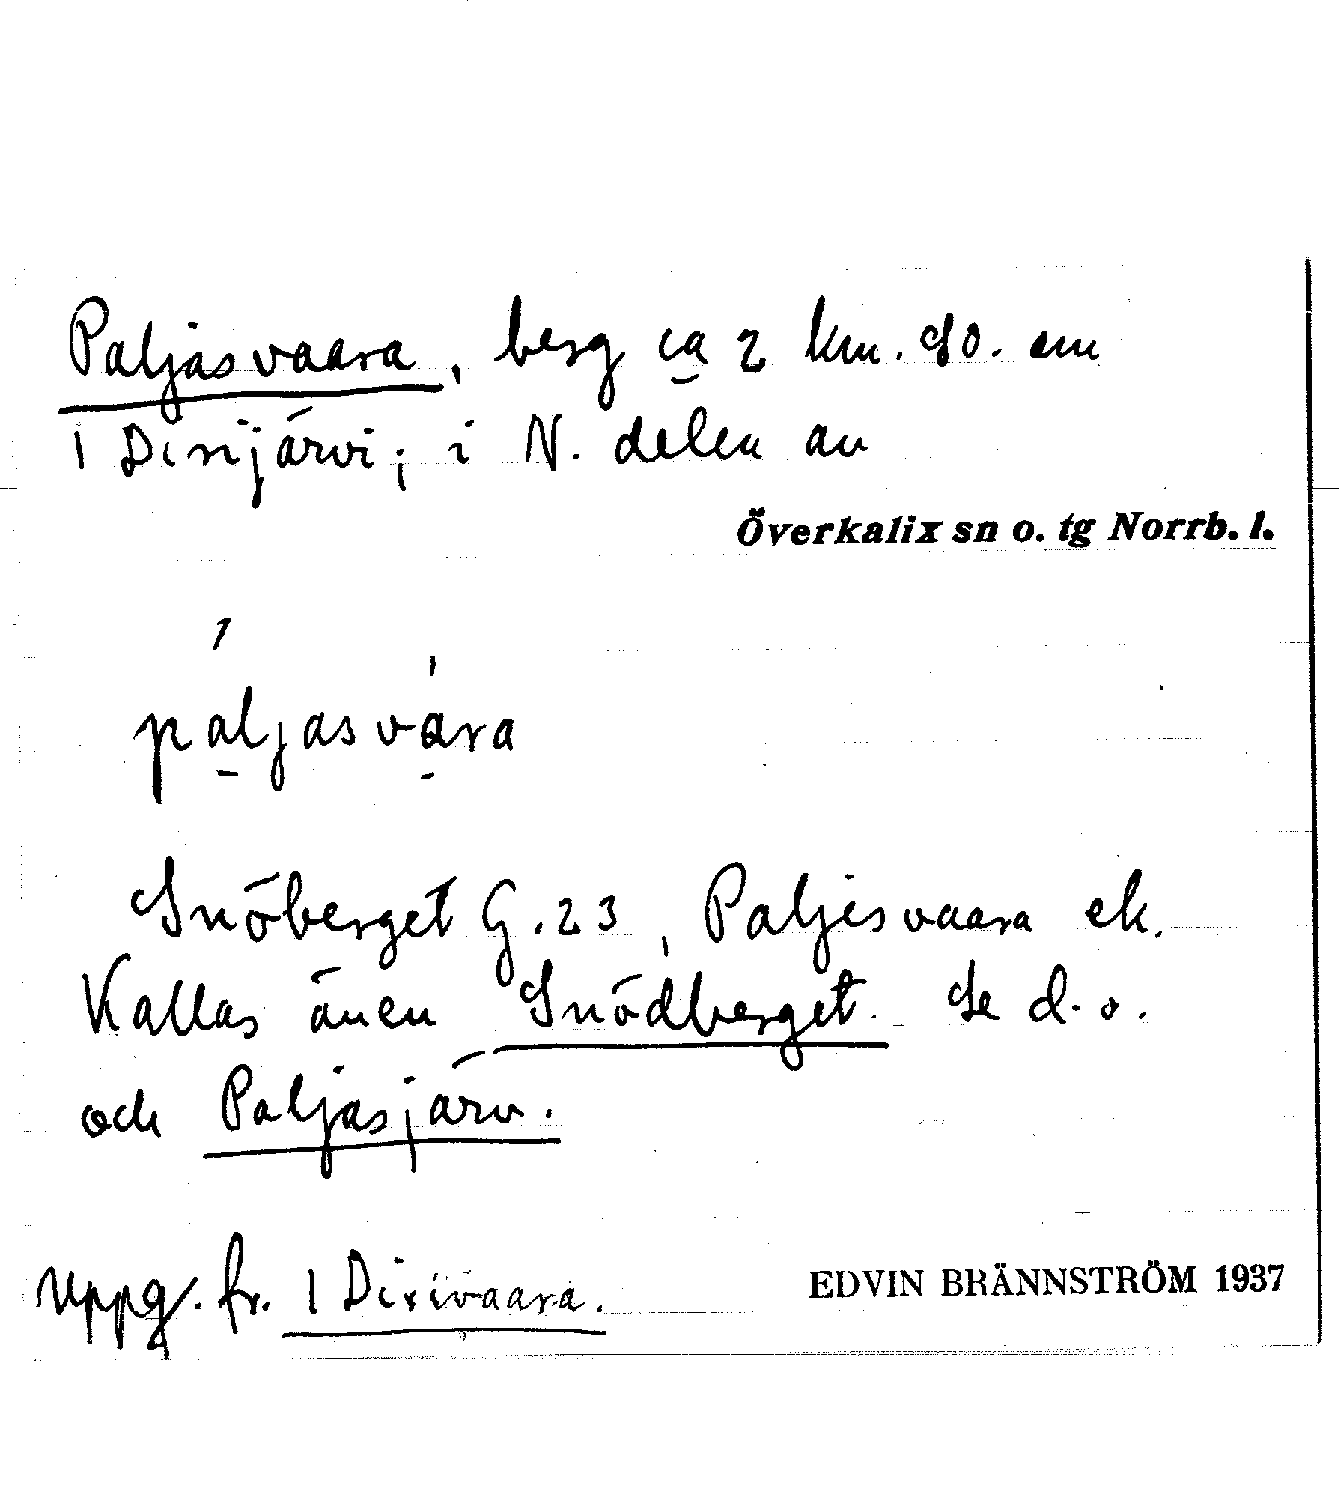 Paljasvaara, berg ca 2 km. SO. om
1 Dirijärvi; i N. delen av
Överkalix sn o. tg Norrb. l.
paljasvara
Snöberget G. 23, Paljesvaara ek.
Kallas även Snödberget. Se d. o.
och Paljasjärv.
Uppg. fr. 1 Dirivaara.
EDVIN BRÄNNSTRÖM 1937